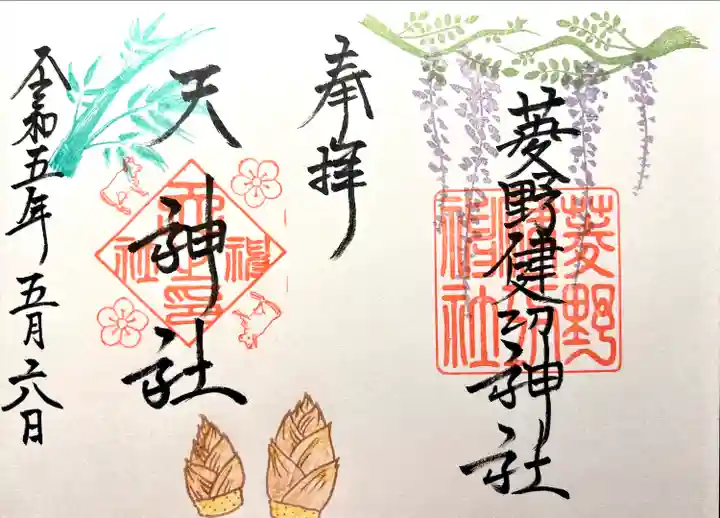 菱野健功神社
奉拝
天神社
令和五年五月六日
菱野
神社